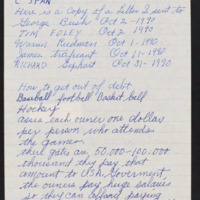 C SPAN
Here is a Copy of a Letter I sent to
George Bush Oct 2-1990
TIM FOLEY Oct 2 1990
Warren Rudman Oct 1-1990
James Traficant Oct 21-1990
RICHARD Gephart Oct 31-1990
How to get out of debt.
Baseball football Basket bell
Hockey
asure each owner one dollar
per person who attends
the games.
their gets an, 50.000-100.000
thousand they pay that
amount to U.S.A. Government,
the owners pay huge salaries
so they can afford paying